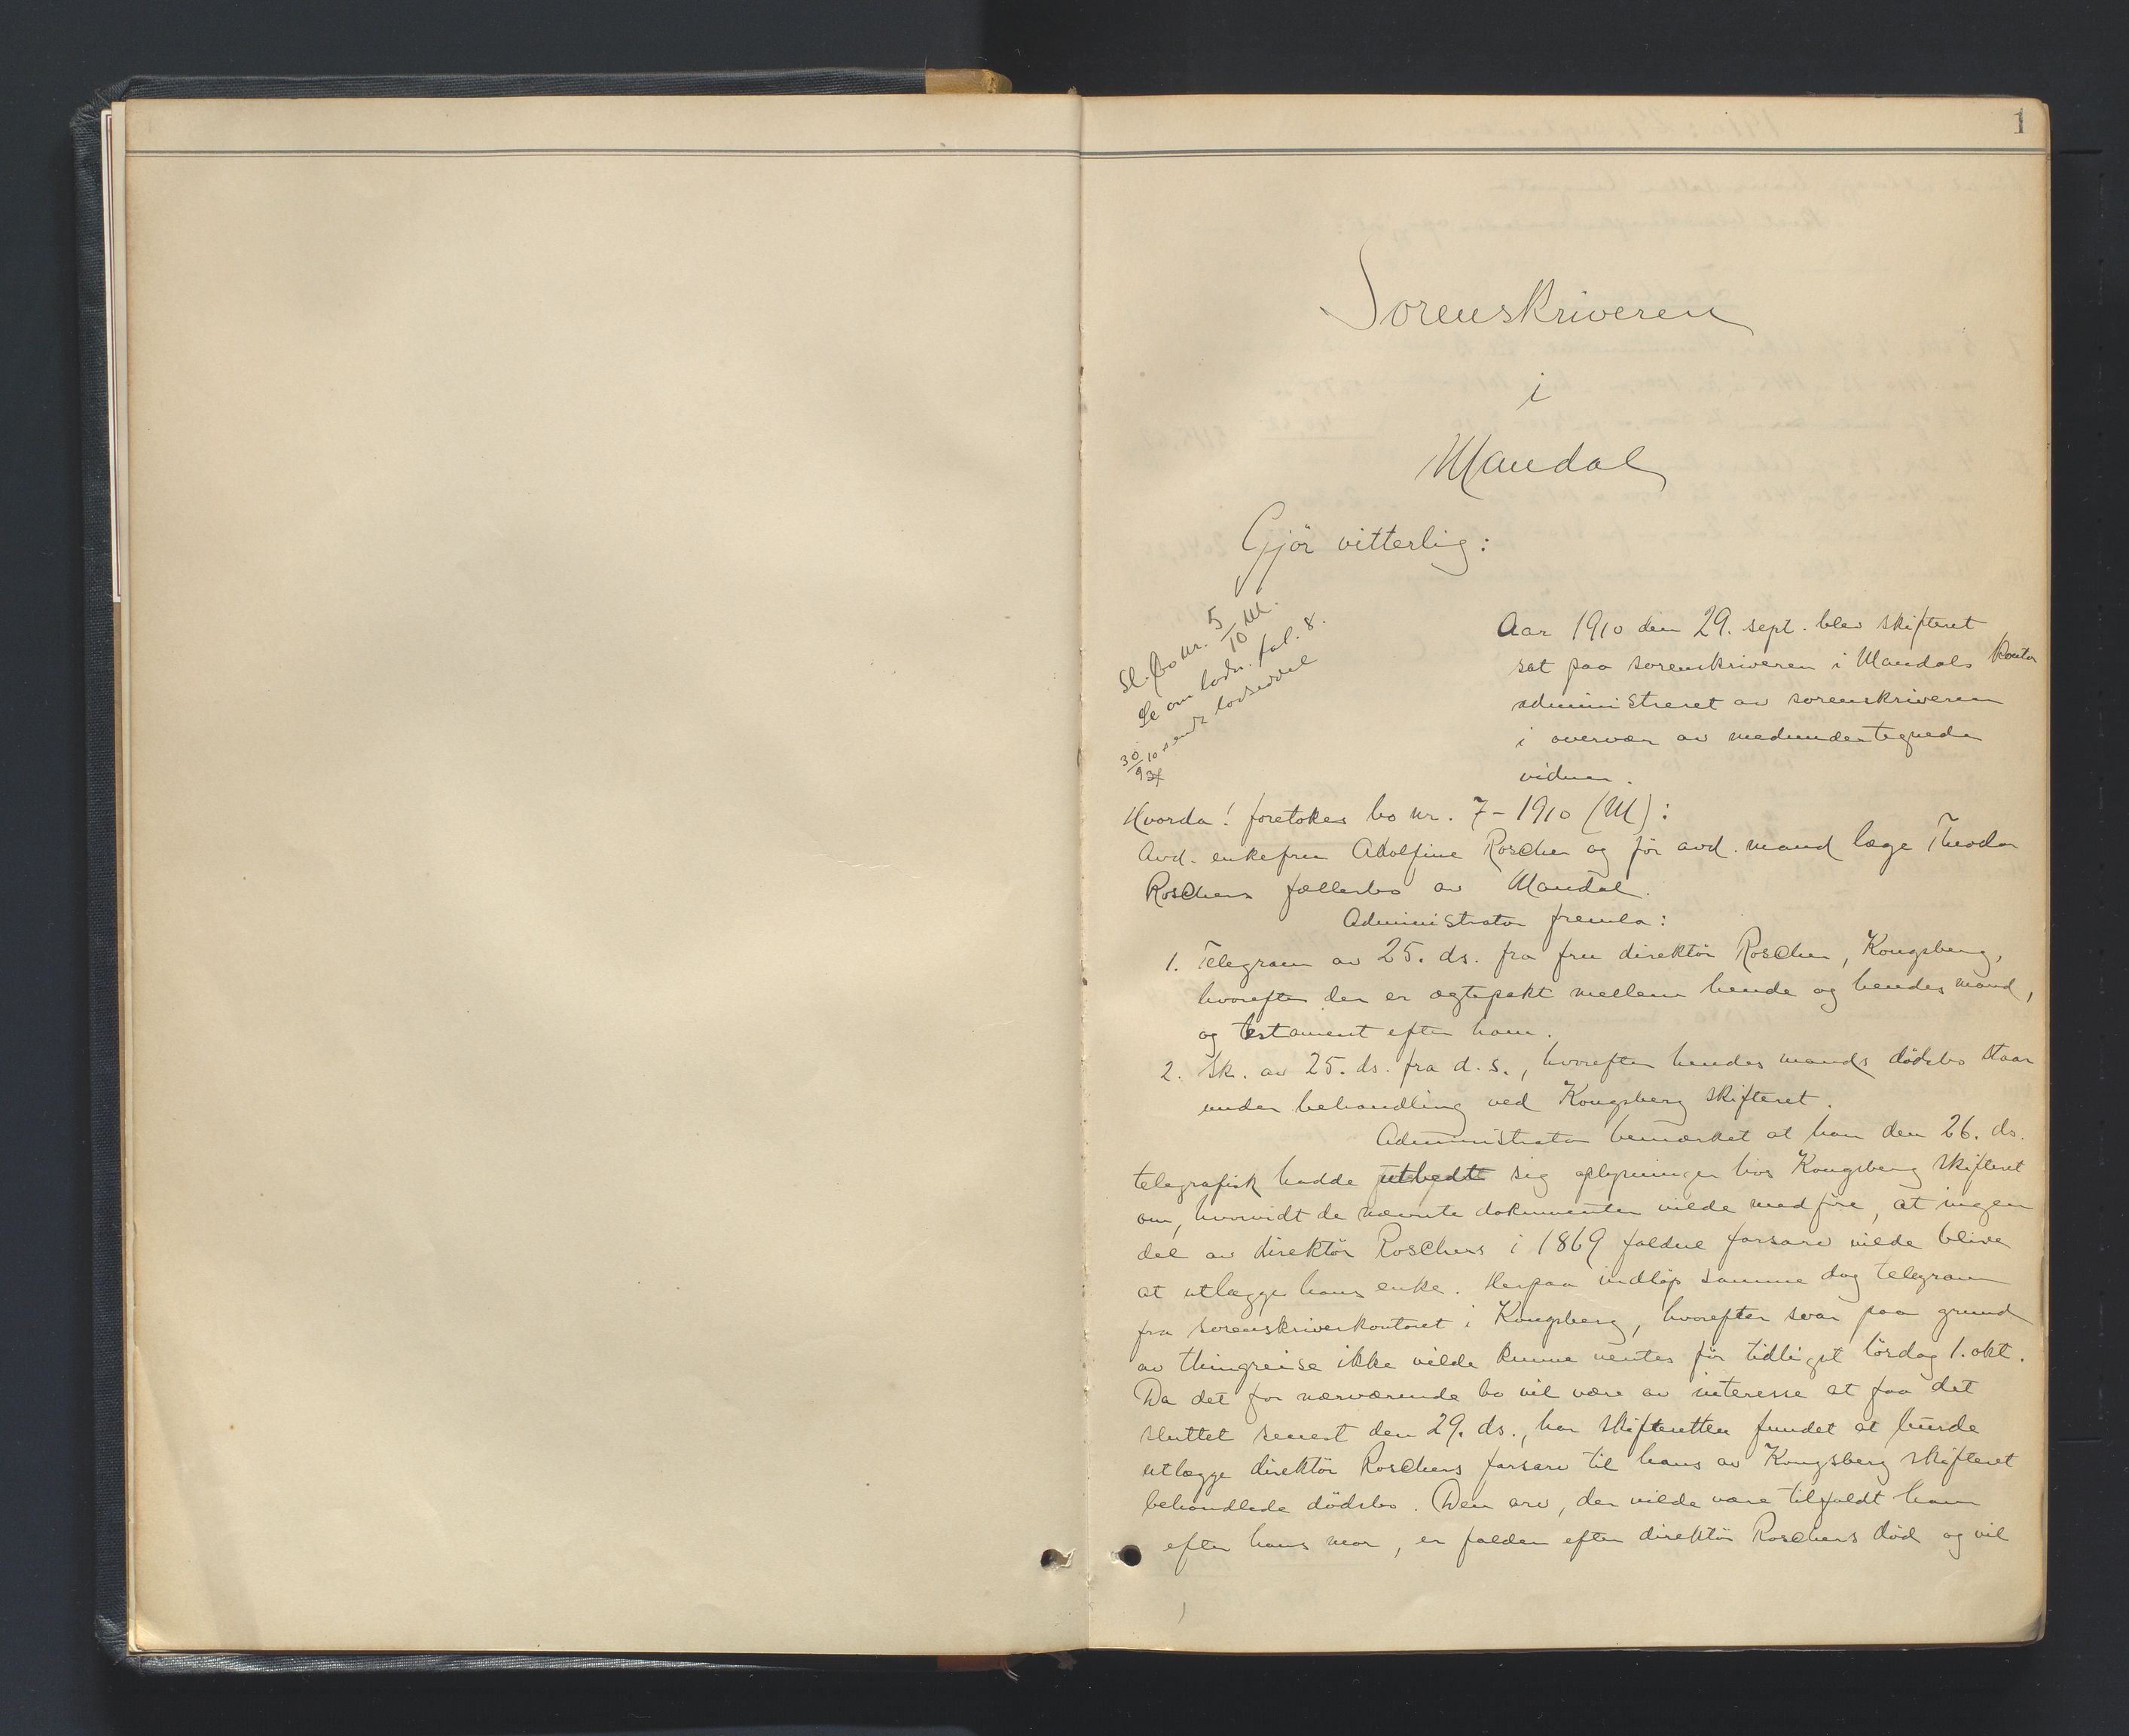 1
Sorenskriveren
i
Mandal
Gjör vitterlig:
Sl. bo nr. 5/10 M.
Se om lodn. fol. 8.
30/9 10 sendt lodseddel
Aar 1910 den 29. sept. blev skifteret
sat paa sorenskriveren i Mandals kontor
administreret av sorenskriveren
i overvær av medundertegnede
vidner.
Hvorda! foretokes bo nr. 7-1910 (M):
Avd. enkefru Adolfine Roscher og för avd. mand læge Theodor
Roschers fællesbo av Mandal.
Administrator fremla:
1. Telegram av 25. ds. fra fru direktör Roscher, Kongsberg,
hvorefter der er ægtepakt mellem hende og hendes mand,
og testament efter ham.
2. Sk. av 25. ds. fra d. s., hvorefter hendes mands dödsbo staar
under behandling ved Kongsberg skifteret.
Administrator bemærket at han den 26. ds.
telegrafisk hadde utbedt sig oplysninger hos Kongsberg skifteret
om, hvorvidt de nævnte dokumenter vilde medföre, at ingen
del av direktör Roschers i 1869 faldne farsarv vilde blive
at utlægge hans enke. Herpaa indlöp samme dag telegram
fra sorenskriverkontoret i Kongsberg, hvorefter svar paa grund
av thingreise ikke vilde kunne ventes för tidligst lördag 1. okt.
Da det for nærværende bo vil være av interesse at faa det
sluttet senest den 29. ds., har skifteretten fundet at burde
utlægge direktör Roschers farsarv til hans av Kongsberg skifteret
behandlede dödsbo. Den arv, der vilde være tilfaldt ham
efter hans mor, er falden efter direktör Roschers död og vil